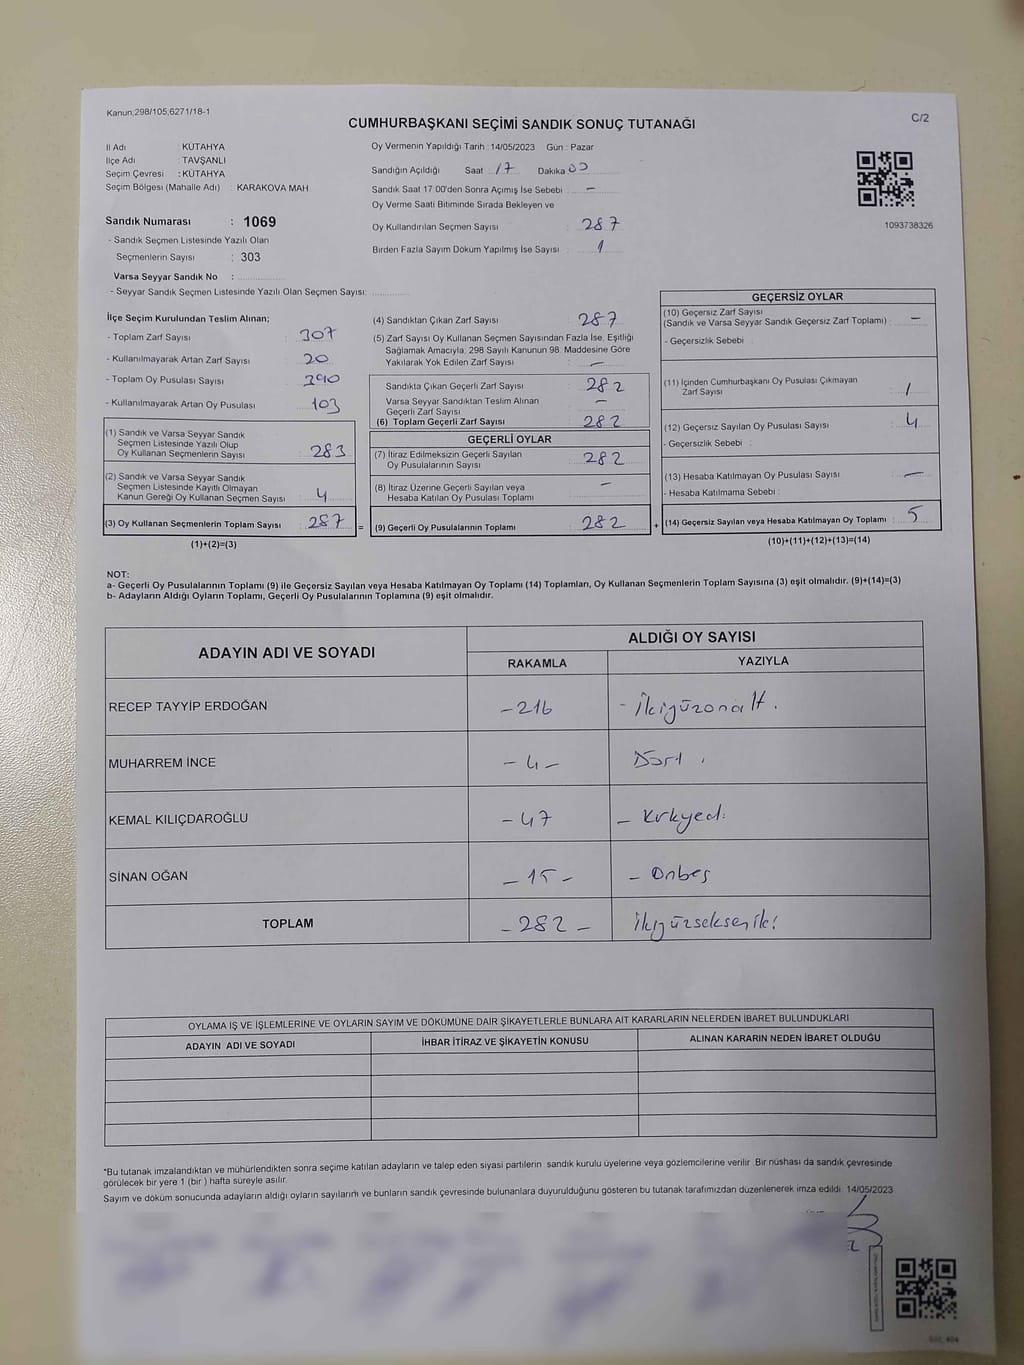 Kanun;298/105;6271/18-1
C/2
CUMHURBAŞKANI SEÇİMİ SANDIK SONUÇ TUTANAĞI
İl Adı : KÜTAHYA
İlçe Adı : TAVŞANLI
Seçim Çevresi : KÜTAHYA
Seçim Bölgesi (Mahalle Adı) : KARAKOVA MAH
Sandık Numarası : 1069
- Sandık Seçmen Listesinde Yazılı Olan
Seçmenlerin Sayısı : 303
Varsa Seyyar Sandık No :
- Seyyar Sandık Seçmen Listesinde Yazılı Olan Seçmen Sayısı:
Oy Vermenin Yapıldığı Tarih : 14/05/2023 Gün : Pazar
Sandığın Açıldığı Saat 17 Dakika 00
Sandık Saat 17:00'den Sonra Açımış İse Sebebi : -
Oy Verme Saati Bitiminde Sırada Bekleyen ve
Oy Kullandırılan Seçmen Sayısı : 287
Birden Fazla Sayım Döküm Yapılmış İse Sayısı : 1
1093738326
İlçe Seçim Kurulundan Teslim Alınan;
- Toplam Zarf Sayısı : 307
- Kullanılmayarak Artan Zarf Sayısı : 20
- Toplam Oy Pusulası Sayısı : 390
- Kullanılmayarak Artan Oy Pusulası : 103
(1) Sandık ve Varsa Seyyar Sandık
Seçmen Listesinde Yazılı Olup
Oy Kullanan Seçmenlerin Sayısı : 283
(2) Sandık ve Varsa Seyyar Sandık
Seçmen Listesinde Kayıtlı Olmayan
Kanun Gereği Oy Kullanan Seçmen Sayısı : 4
(3) Oy Kullanan Seçmenlerin Toplam Sayısı : 287 =
(1)+(2)=(3)
(4) Sandıktan Çıkan Zarf Sayısı : 287
(5) Zarf Sayısı Oy Kullanan Seçmen Sayısından Fazla İse, Eşitliği
Sağlamak Amacıyla; 298 Sayılı Kanunun 98. Maddesine Göre
Yakılarak Yok Edilen Zarf Sayısı : -
Sandıkta Çıkan Geçerli Zarf Sayısı : 282
Varsa Seyyar Sandıktan Teslim Alınan
Geçerli Zarf Sayısı : -
(6) Toplam Geçerli Zarf Sayısı : 282
GEÇERLİ OYLAR
(7) İtiraz Edilmeksizin Geçerli Sayılan
Oy Pusulalarının Sayısı : 282
(8) İtiraz Üzerine Geçerli Sayılan veya
Hesaba Katılan Oy Pusulası Toplamı : -
(9) Geçerli Oy Pusulalarının Toplamı : 282 +
GEÇERSİZ OYLAR
(10) Geçersiz Zarf Sayısı
(Sandık ve Varsa Seyyar Sandık Geçersiz Zarf Toplamı) : -
- Geçersizlik Sebebi :
(11) İçinden Cumhurbaşkanı Oy Pusulası Çıkmayan
Zarf Sayısı : 1
(12) Geçersiz Sayılan Oy Pusulası Sayısı : 4
- Geçersizlik Sebebi :
(13) Hesaba Katılmayan Oy Pusulası Sayısı : -
- Hesaba Katılmama Sebebi :
(14) Geçersiz Sayılan veya Hesaba Katılmayan Oy Toplamı : 5
(10)+(11)+(12)+(13)=(14)
NOT:
a- Geçerli Oy Pusulalarının Toplamı (9) ile Geçersiz Sayılan veya Hesaba Katılmayan Oy Toplamı (14) Toplamları, Oy Kullanan Seçmenlerin Toplam Sayısına (3) eşit olmalıdır. (9)+(14)=(3)
b- Adayların Aldığı Oyların Toplamı, Geçerli Oy Pusulalarının Toplamına (9) eşit olmalıdır.
ADAYIN ADI VE SOYADI
ALDIĞI OY SAYISI
RAKAMLA YAZIYLA
RECEP TAYYİP ERDOĞAN -216 - İkiyüzonaltı.
MUHARREM İNCE -4- Dört.
KEMAL KILIÇDAROĞLU -47 - Kırkyedi
SİNAN OĞAN -15- - Onbeş
TOPLAM -282- İkiyüzsekseniki
OYLAMA İŞ VE İŞLEMLERİNE VE OYLARIN SAYIM VE DÖKÜMÜNE DAİR ŞİKAYETLERLE BUNLARA AİT KARARLARIN NELERDEN İBARET BULUNDUKLARI
ADAYIN ADI VE SOYADI İHBAR İTİRAZ VE ŞİKAYETİN KONUSU ALINAN KARARIN NEDEN İBARET OLDUĞU
*Bu tutanak imzalandıktan ve mühürlendikten sonra seçime katılan adayların ve talep eden siyasi partilerin sandık kurulu üyelerine veya gözlemcilerine verilir. Bir nüshası da sandık çevresinde
görülecek bir yere 1 (bir ) hafta süreyle asılır.
Sayım ve döküm sonucunda adayların aldığı oyların sayılarını ve bunların sandık çevresinde bulunanlara duyurulduğunu gösteren bu tutanak tarafımızdan düzenlenerek imza edildi. 14/05/2023